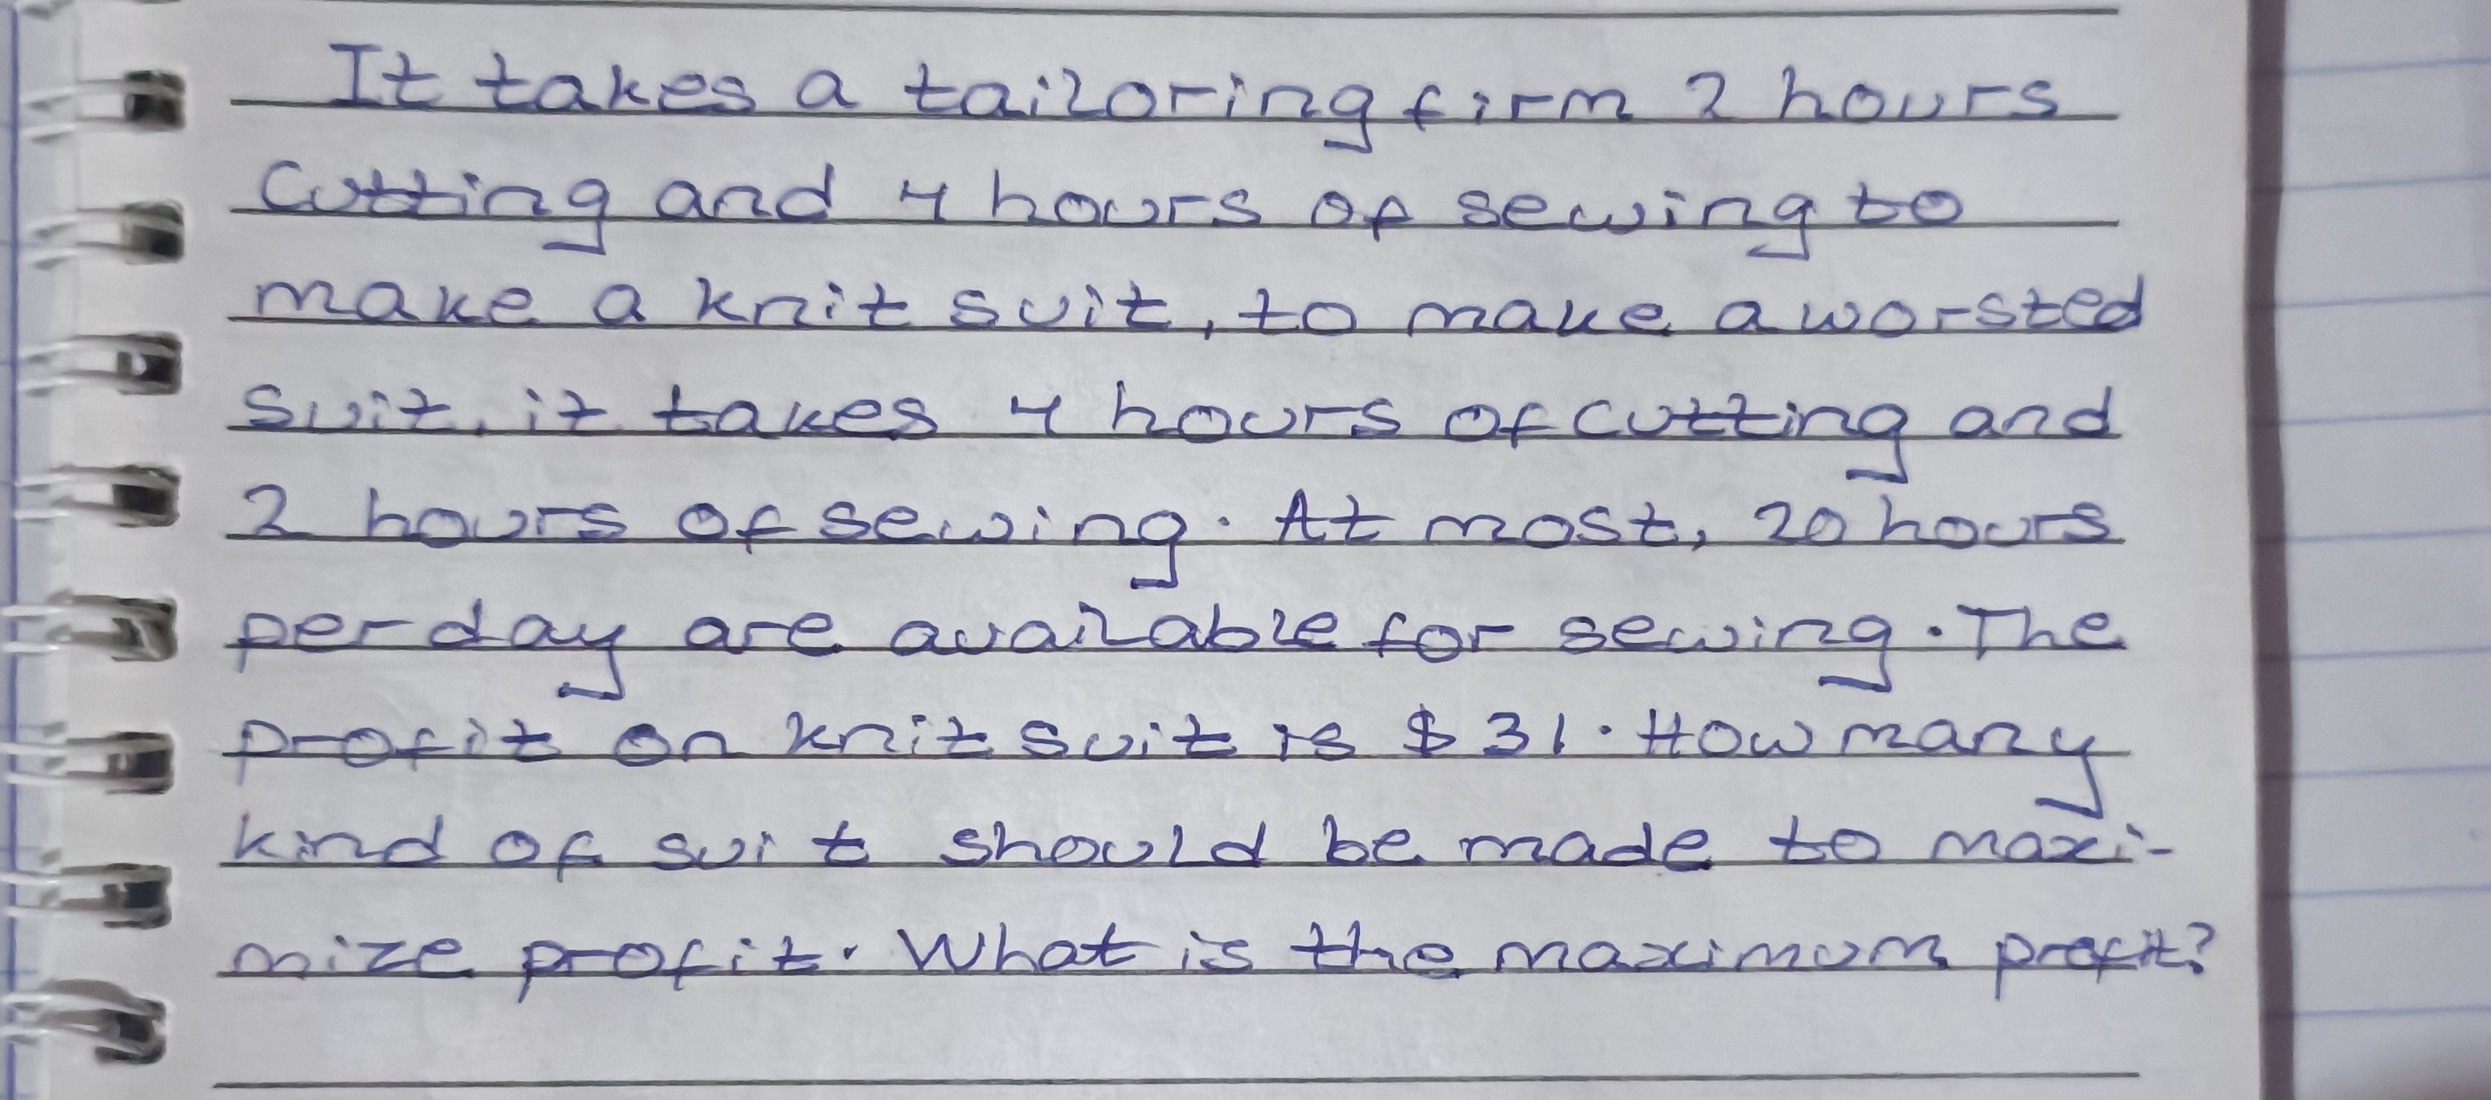 It takes a tailoring firm 2 hours
cutting and 4 hours of sewing to
make a knit suit, to make a worsted
suit, it takes 4 hours of cutting and
2 hours of sewing. At most, 20 hours
per day are available for sewing. The
profit on knit suit is $31. How many
kind of suit should be made to maxi-
mize profit. What is the maximum profit?